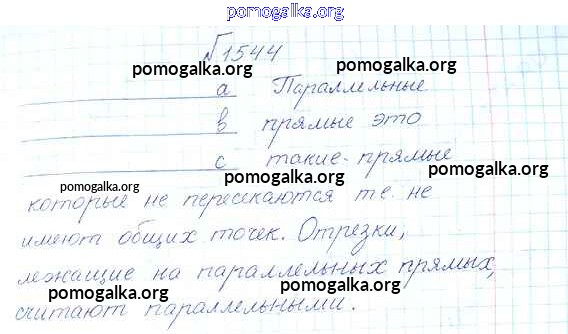 pomogalka.org
№1544
pomogalka.org pomogalka.org
a Параллельные
pomogalka.org pomogalka.org
в прямые это
c такие-прямые
pomogalka.org pomogalka.org
которые не пересекаются т.е. не
имеют общих точек. Отрезки,
лежащие на параллельных прямых,
pomogalka.org pomogalka.org
считают параллельными.